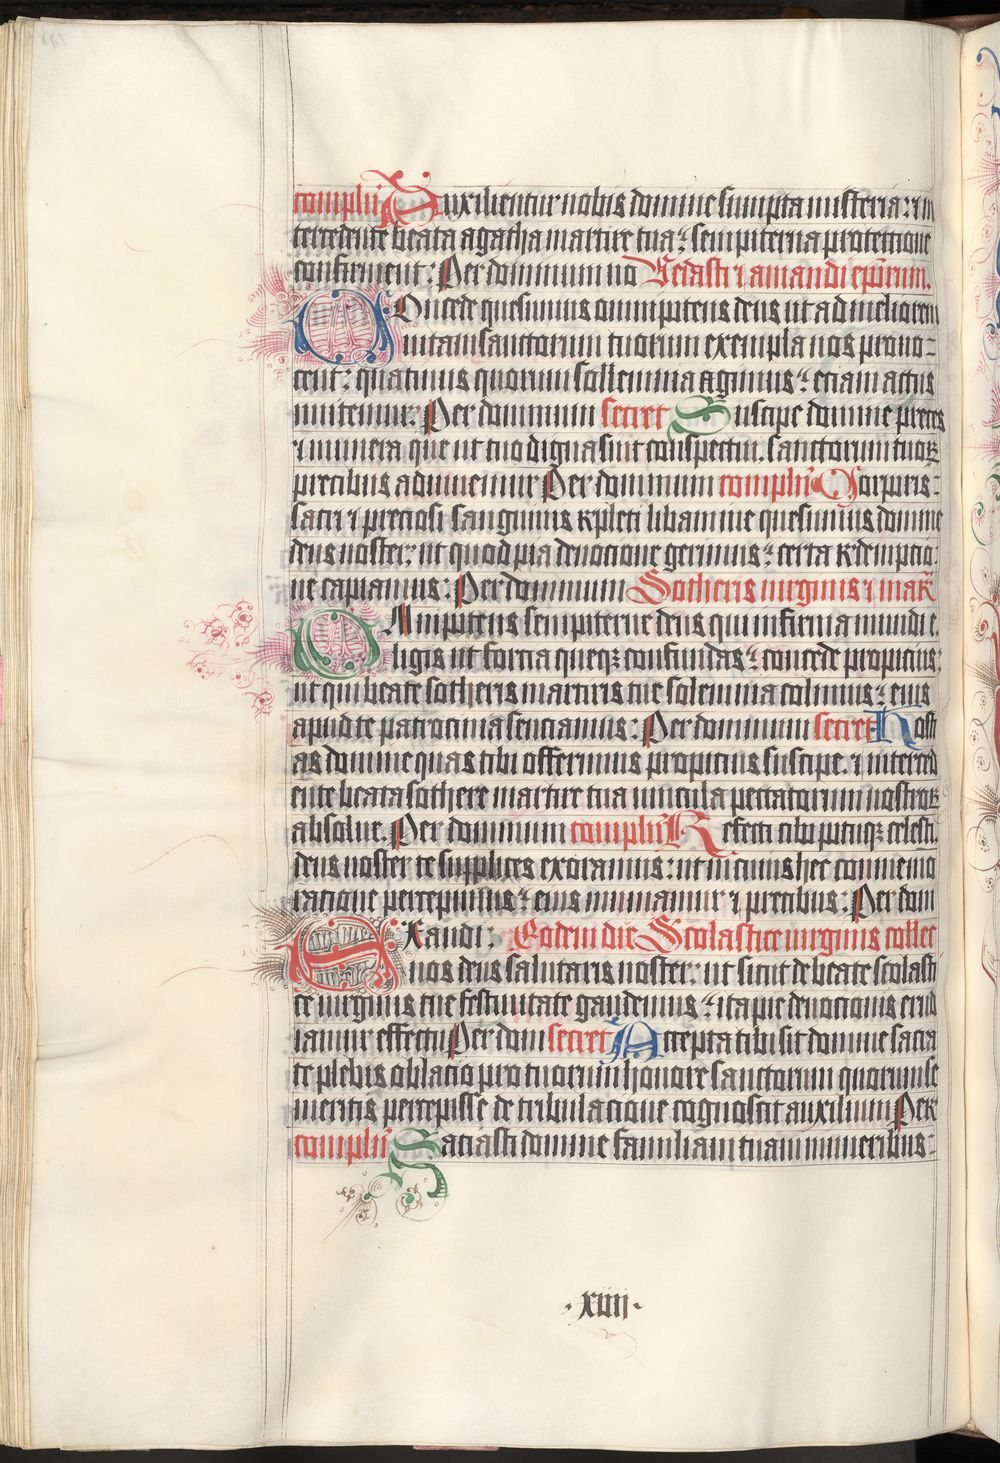 complu̅ Auxilientur nobis domine sumpta misteria: ⁊ in
tercedente beata agatha martire tua: sempiterna protectione
confirment: Per dominum no Vedasti ⁊ amandi ep̅orum.
COncede quesumus omnipotens deus ut ad meliorem
uitam sanctorum tuorum exempla nos prouo-
cent: quatinus quorum sollemnia agimus: etiam actus
imitemur: Per dominum secret Suscipe domine preces
⁊ munera que ut tuo digna sint conspectui. sanctorum tuoꝝ
precibus adiuuemur Per dominum complu̅ Corporis:
sacri ⁊ preciosi sanguinis repleti libamine quesumus domine
deus noster: ut quod pia deuotione gerimus: certa redemptio:
ne capiamus: Per dominum Sotheris uirginis ⁊ mar̅
OMnipotens sempiterne deus qui infirma mundi e
ligis ut fortia queqꝫ confundas: concede propicius:
ut qui beate sotheris martiris tue solemnia colimus: eius
apud te patrocinia sentiamus: Per dominum secret Hosti
as domine quas tibi offerimus propicius suscipe. ⁊ interced
ente beata sothere martire tua uincula peccatorum nostroꝝ
absolue. Per dominum complu̅ Refecti cibo potuqꝫ celesti.
deus noster te supplices exoramus: ut in cuius hec commemo
ratione percepimus: eius muniamur ⁊ precibus: Per dom
EXaudi: Eodem die Scolastice uirginis collec
nos deus salutaris noster: ut sicut de beate scolasti
ce uirginis tue festiuitate gaudemus: ita pie deuotionis erud
iamur effectu Per dom secret Accepta tibi sit domine sacra
te plebis oblatio pro tuorum honore sanctorum quorum se
meritis percepisse de tribulatione cognoscit auxilium Per
complu̅ Saciasti domine familiam tuam muneribus:
·xiiii·